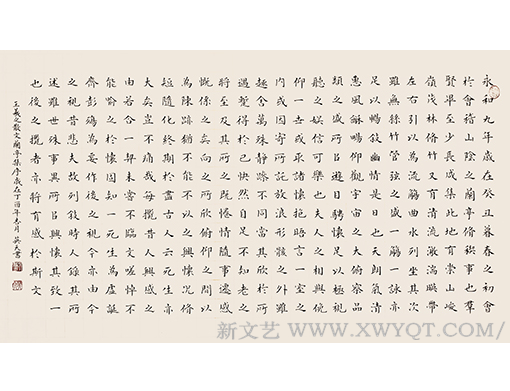 永和九年歲在癸丑暮春之初會
於會稽山陰之蘭亭脩稧事也羣
賢畢至少長咸集此地有崇山峻
嶺茂林脩竹又有清流激湍暎帶
左右引以為流觴曲水列坐其次
雖無絲竹管弦之盛一觴一詠亦
足以暢敘幽情是日也天朗氣清
惠風和暢仰觀宇宙之大俯察品
類之盛所以遊目騁懷足以極視
聽之娛信可樂也夫人之相與俯
仰一世或取諸懷抱悟言一室之
內或因寄所託放浪形骸之外雖
趣舍萬殊靜躁不同當其欣於所
遇蹔得於己快然自足不知老之
將至及其所之既惓情隨事遷感
慨係之矣向之所欣俛仰之間以
為陳跡猶不能不以之興懷況脩
短隨化終期於盡古人云死生亦
大矣豈不痛哉每攬昔人興感之
由若合一契未嘗不臨文嗟悼不
能喻之於懷固知一死生為虛誕
齊彭殤為妄作後之視今亦由今
之視昔悲夫故列敘時人錄其所
述雖世殊事異所以興懷其致一
也後之攬者亦將有感於斯文
王羲之散文蘭亭集序歲在丁酉年 月吳 書
新文艺 WWW.XWYQT.COM/